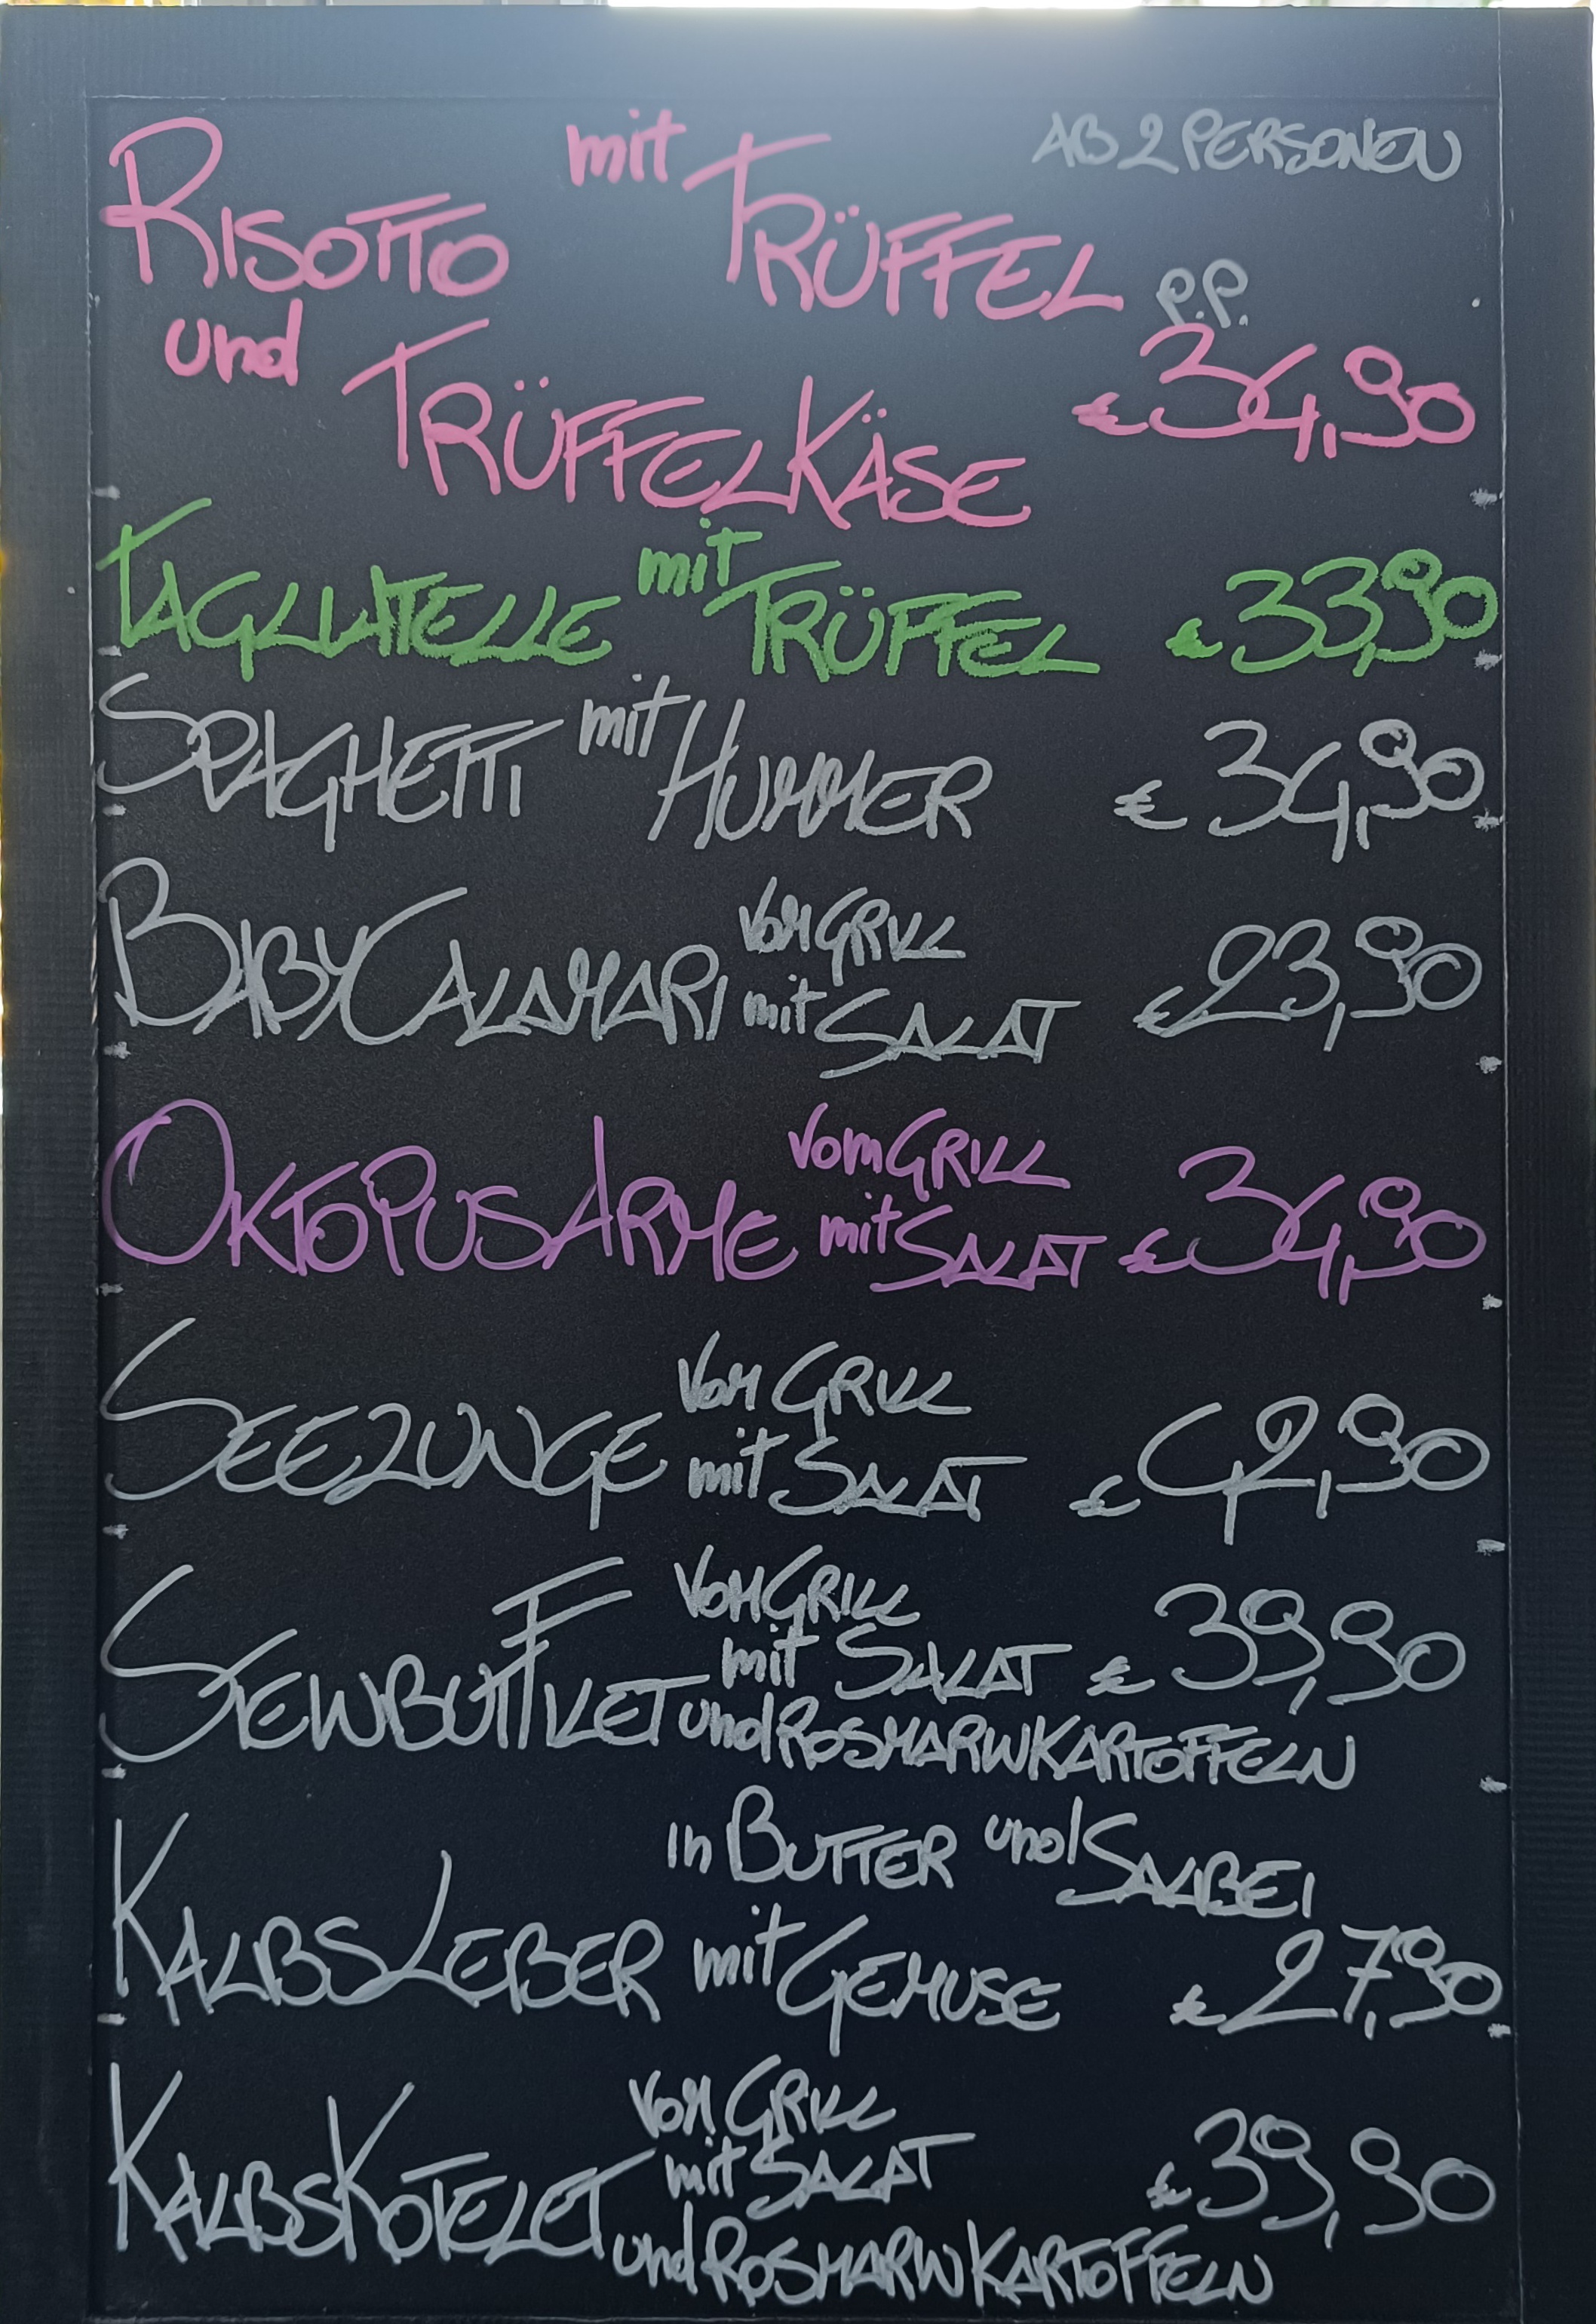 AB 2 PERSONEN
RISOTTO mit TRÜFFEL
und TRÜFFELKÄSE P.P. € 34,90
TAGLIATELLE mit TRÜFFEL € 33,90
SPAGHETTI mit HUMMER € 34,90
BABYCALAMARI VOM GRILL
mit SALAT € 23,90
OKTOPUSARME vom GRILL
mit SALAT € 34,90
SEEZUNGE VOM GRILL
mit SALAT € 42,90
STEINBUTTFILET VOM GRILL
mit SALAT € 39,90
und ROSMARINKARTOFFELN
in BUTTER und SALBEI
KALBSLEBER mit GEMUSE € 27,90
KALBSKOTELET VOM GRILL
mit SALAT € 39,90
und ROSMARINKARTOFFELN